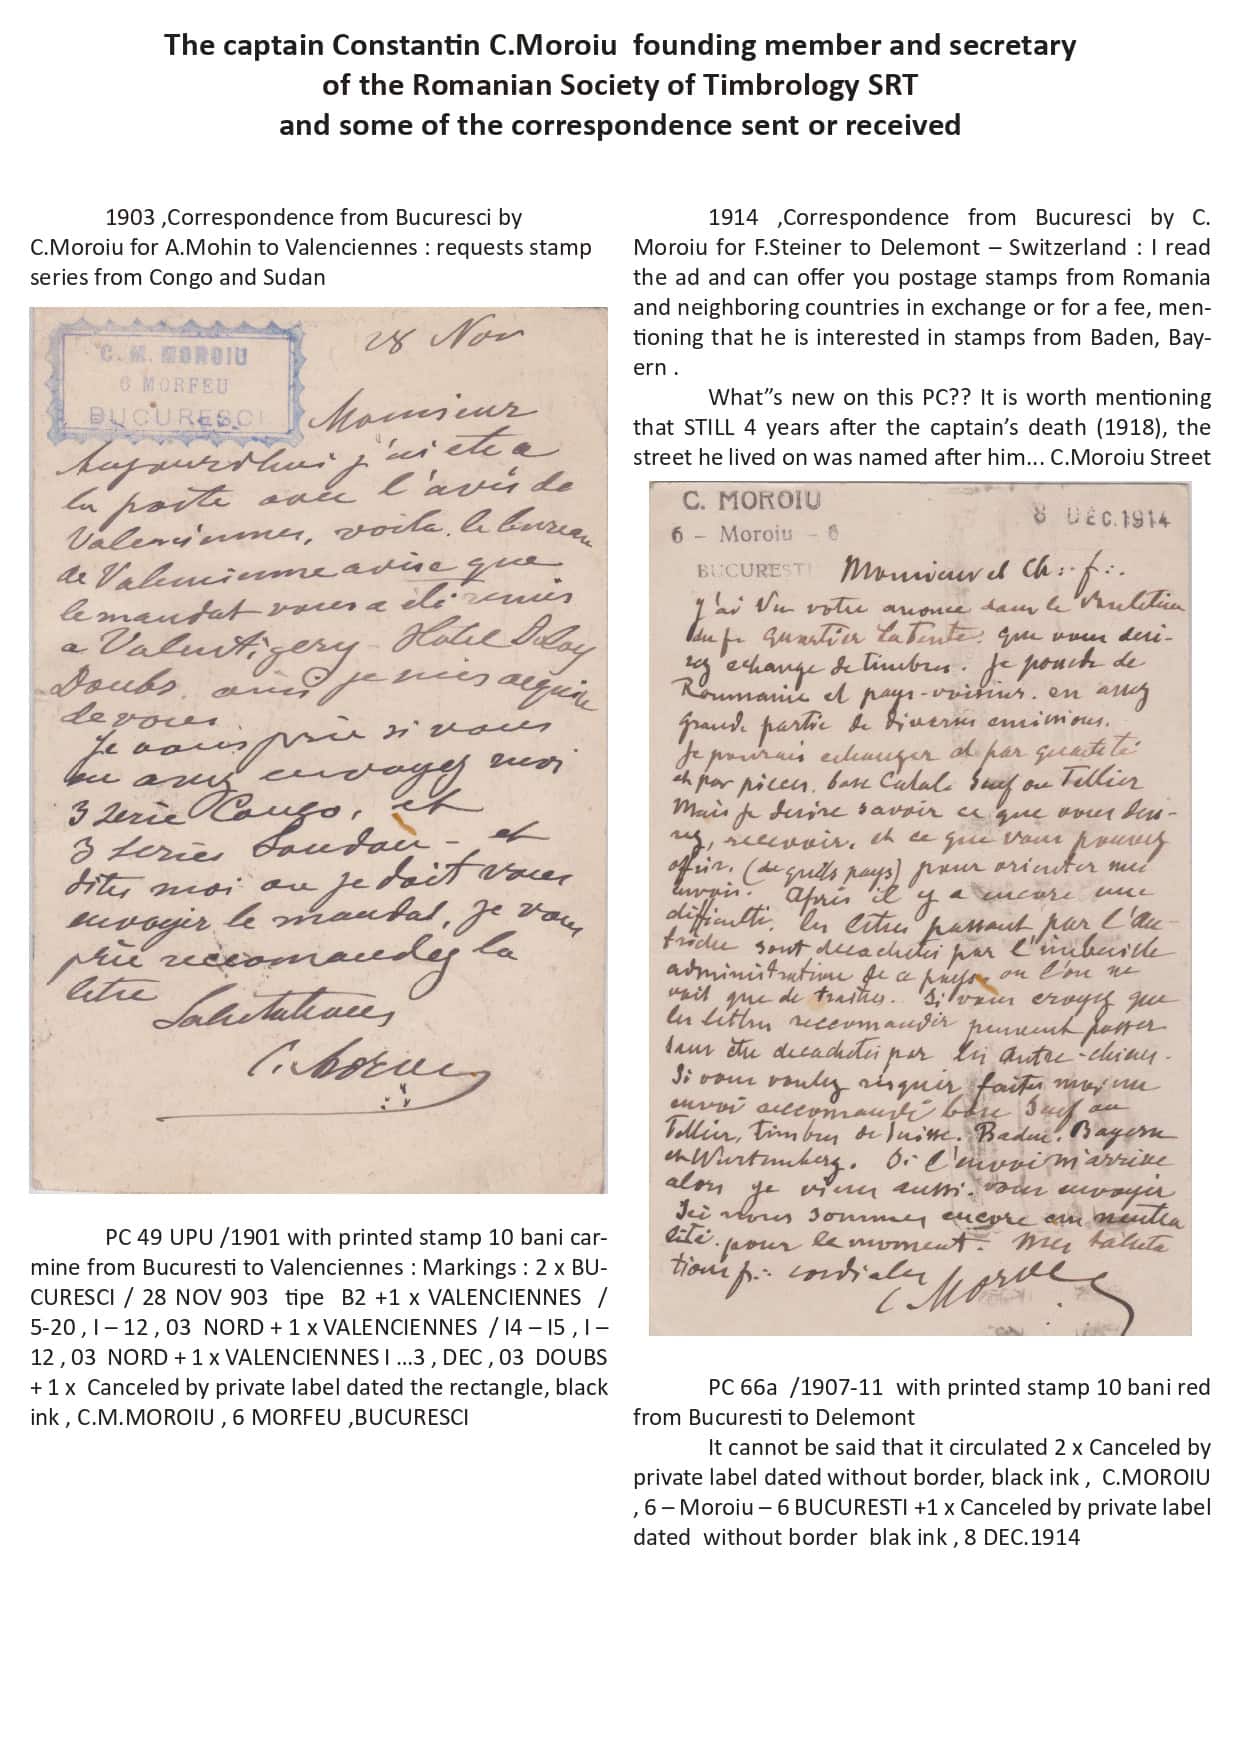 The captain Constantin C.Moroiu founding member and secretary
of the Romanian Society of Timbrology SRT
and some of the correspondence sent or received
1903 ,Correspondence from Bucuresci by
C.Moroiu for A.Mohin to Valenciennes : requests stamp
series from Congo and Sudan
C. M. MOROIU
6 MORFEU
BUCURESCI
28 Nov
Monsieur
Aujourdhui j'ai ete a
la poste avec l'avis de
Valenciennes, voila le bureau
de Valencienne avise que
le mandat vous a été remis
a Valentigery - Hotel
Doubs.
de vous
Je vous prie si vous
en avez envoyez moi
3 serie Congo, et
3 series Soudan - et
dites moi ou je doit vous
envoyer le mandat, je vous
prie reccomandez la
letre
Salutations
C. Moroiu
PC 49 UPU /1901 with printed stamp 10 bani car-
mine from Bucuresti to Valenciennes : Markings : 2 x BU-
CURESCI / 28 NOV 903 tipe B2 +1 x VALENCIENNES /
5-20 , I – 12 , 03 NORD + 1 x VALENCIENNES / I4 – I5 , I –
12 , 03 NORD + 1 x VALENCIENNES I ...3 , DEC , 03 DOUBS
+ 1 x Canceled by private label dated the rectangle, black
ink , C.M.MOROIU , 6 MORFEU ,BUCURESCI
1914 ,Correspondence from Bucuresci by C.
Moroiu for F.Steiner to Delemont – Switzerland : I read
the ad and can offer you postage stamps from Romania
and neighboring countries in exchange or for a fee, men-
tioning that he is interested in stamps from Baden, Bay-
ern .
What”s new on this PC?? It is worth mentioning
that STILL 4 years after the captain’s death (1918), the
street he lived on was named after him... C.Moroiu Street
C. MOROIU
6 – Moroiu – 6
BUCURESTI
8 DEC.1914
Monsieur et Ch∴ f∴
J'ai vu votre anonce dans le
du f. Quartier La Tente: que vous desi-
rez echange de timbres. Je possede de
Roumanie et pays-voisins. en assez
grande partie de diverses emissions.
Je pourrais echanger et par quantité
et par pieces. base Catal. Senf ou Tellier
Mais je desire savoir ce que vous desi-
rez, recevoir, et ce que vous pouvez
offrir. (de quels pays) pour orienter mes
envois. Après il y a encore une
difficulté. les letres passant par l'Au-
triche sont decachetés par l'imbecile
administration de ce pays, ou l'on ne
voit que de traitres. Si vous croyez que
les lettres reccomander peuvent passer
sans être decachetés par les autre-chiens.
Si vous voulez risquer faites moi un
envoi reccomandé base Senf ou
Tellier, timbres de Suisse. Baden. Bayern
et Wurtemberg. Si l'envoi m'arrive
alors je viens aussi vous envoyer
Ici nous sommes encore en neutra
lité. pour le moment. Mes saluta
tions f∴ cordiales
C Moroiu
PC 66a /1907-11 with printed stamp 10 bani red
from Bucuresti to Delemont
It cannot be said that it circulated 2 x Canceled by
private label dated without border, black ink , C.MOROIU
, 6 – Moroiu – 6 BUCURESTI +1 x Canceled by private label
dated without border blak ink , 8 DEC.1914